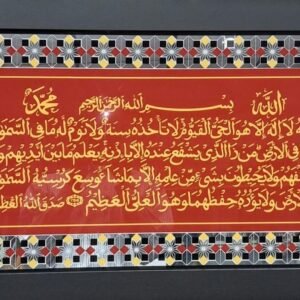 الله بسم الله الرحمن الرحيم محمد
لا إله إلا هو الحي القيوم لا تأخذه سنة ولا نوم له ما في السمو
في الأرض من ذا الذي يشفع عنده إلا بإذنه يعلم ما بين أيديهم و
فهم ولا يحيطون بشيء من علمه إلا بما شاء وسع كرسيه السمو
لأرض ولا يؤده حفظهما وهو العلي العظيم صدق الله العظ